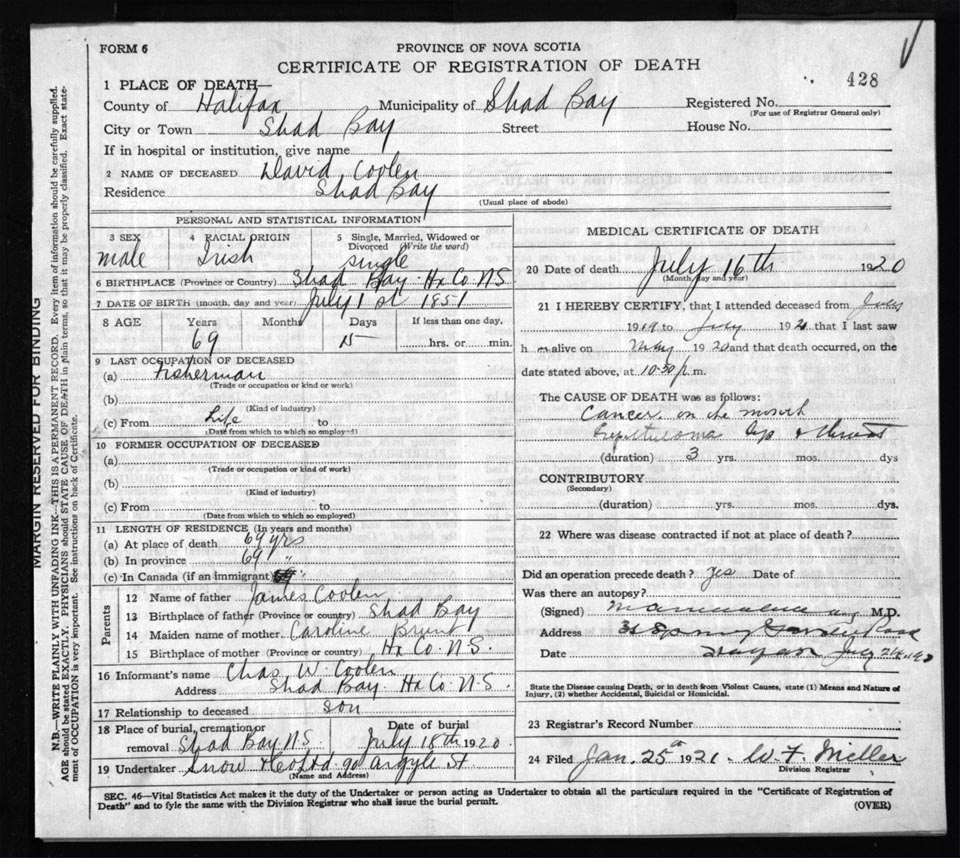 FORM 6
PROVINCE OF NOVA SCOTIA
CERTIFICATE OF REGISTRATION OF DEATH
428
1 PLACE OF DEATH—
County of Halifax Municipality of Shad Bay Registered No.
(For use of Registrar General only)
City or Town Shad Bay Street House No.
If in hospital or institution, give name
2 NAME OF DECEASED David Coolen
Residence Shad Bay
(Usual place of abode)
PERSONAL AND STATISTICAL INFORMATION
3 SEX 4 RACIAL ORIGIN 5 Single, Married, Widowed or Divorced (Write the word)
male Irish single
6 BIRTHPLACE (Province or Country) Shad Bay Hx Co NS
7 DATE OF BIRTH (month, day and year) July 1st 1851
8 AGE Years Months Days If less than one day,
69 15 hrs. or min.
9 LAST OCCUPATION OF DECEASED
(a) Fisherman
(Trade or occupation or kind or work)
(b)
(Kind of industry)
(c) From Life to
(Date from which to which so employed)
10 FORMER OCCUPATION OF DECEASED
(a)
(Trade or occupation or kind of work)
(b)
(Kind of industry)
(c) From to
(Date from which to which so employed)
11 LENGTH OF RESIDENCE (In years and months)
(a) At place of death 69 yrs
(b) In province 69 "
(c) In Canada (if an immigrant) "
Parents
12 Name of father James Coolen
13 Birthplace of father (Province or country) Shad Bay
14 Maiden name of mother Caroline
15 Birthplace of mother (Province or country) Hx Co. N.S.
16 Informant's name Chas W. Coolen
Address Shad Bay Hx Co N.S.
17 Relationship to deceased son
18 Place of burial, cremation or removal Shad Bay N.S. Date of burial July 18th 1920
19 Undertaker Snow & Co Ltd 90 Argyle St
(Name and Address)
MEDICAL CERTIFICATE OF DEATH
20 Date of death July 16th 1920
(Month, day and year)
21 I HEREBY CERTIFY, that I attended deceased from
1919 to July 1920 that I last saw
h alive on May 1920 and that death occurred, on the
date stated above, at 10.30 p.m.
The CAUSE OF DEATH was as follows:
Cancer on the mouth
lip & throat
(duration) 3 yrs. mos. dys
CONTRIBUTORY
(Secondary)
(duration) yrs. mos. dys.
22 Where was disease contracted if not at place of death?
Did an operation precede death? Yes Date of
Was there an autopsy?
(Signed) M.D.
Address Spring Garden Road
Date July
State the Disease causing Death, or in death from Violent Causes, state (1) Means and Nature of
Injury, (2) whether Accidental, Suicidal or Homicidal.
23 Registrar's Record Number
24 Filed Jan. 25th 1921 W. F. Miller
Division Registrar
SEC. 46—Vital Statistics Act makes it the duty of the Undertaker or person acting as Undertaker to obtain all the particulars required in the "Certificate of Registration of
Death" and to fyle the same with the Division Registrar who shall issue the burial permit.
(OVER)
MARGIN RESERVED FOR BINDING
N.B.—WRITE PLAINLY WITH UNFADING INK—THIS IS A PERMANENT RECORD. Every item of information should be carefully supplied.
AGE should be stated EXACTLY. PHYSICIANS should STATE CAUSE OF DEATH in plain terms, so that it may be properly classified. Exact state-
ment of OCCUPATION is very important. See instructions on back of Certificate.